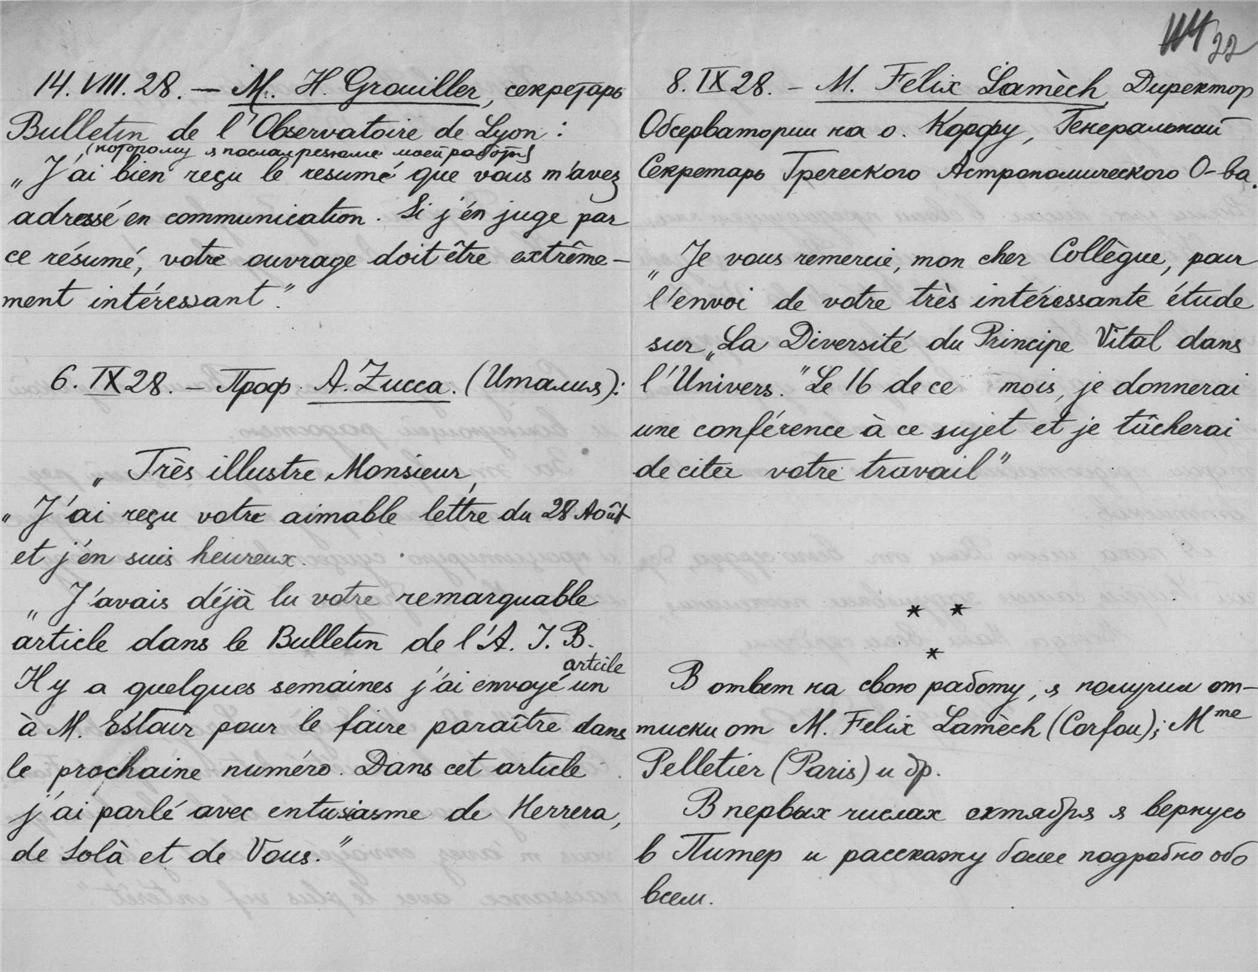 14. VIII. 28. — M. H. Grouiller, секретарь
Bulletin de l'Observatoire de Lyon :
(которому я послал резюме моей работы)
„J'ai bien reçu le resumé que vous m'avez
adressé en communication. Si j'en juge par
ce résumé, votre ouvrage doit être extrême-
ment intéressant."
6. IX 28. — Проф. A. Zucca. (Италия):
„Très illustre Monsieur,
„J'ai reçu votre aimable lettre du 28 Août
et j'en suis heureux.
„J'avais déjà lu votre remarquable
article dans le Bulletin de l'A. I. B.
Il y a quelques semaines j'ai envoyé un article
à M. Estour pour le faire paraître dans
le prochaine numéro. Dans cet article
j'ai parlé avec entusiasme de Herrera,
de Solà et de Vous."
22
8. IX 28. - M. Felix Lamèch, Директор
Обсерватории на о. Корфу, Генеральный
Секретарь Греческого Астрономического О-ва.
„Je vous remercie, mon cher Collègue, pour
l'envoi de votre très intéressante étude
sur „La Diversité du Principe Vital dans
l'Univers." Le 16 de ce mois, je donnerai
une conférence à ce sujet et je tâcherai
de citer votre travail"
* *
*
В ответ на свою работу, я получил от-
тиски от M. Felix Lamèch (Corfou); Mme
Pelletier (Paris) и др.
В первых числах октября я вернусь
в Питер и расскажу более подробно обо
всем.